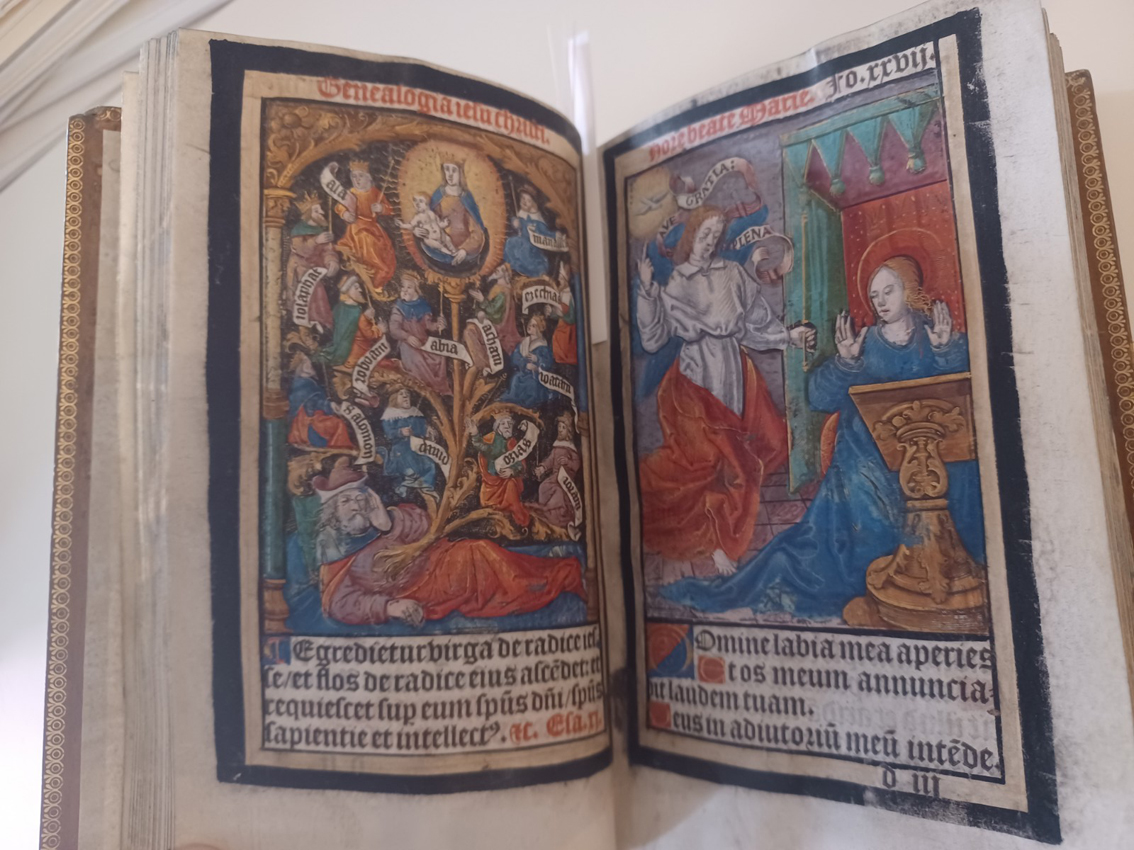 Genealogia iesu christi.
asa
manasses
iosaphat
ezechias
roboam
abia
acham
ioachim
salomon
dauid
osias
ioatam
Egredietur virga de radice ies
se/et flos de radice eius ascēdet: et
requiescet sup eum spūs dñi/spūs
sapientie et intellectꝰ. ⁊c. Esa.xi.
Hore beate Marie. Fo.xxvij.
AVE GRATIA:
PLENA
Domine labia mea aperies
Et os meum annuncia-
bit laudem tuam.
Deus in adiutoriū meū intēde.
d iij